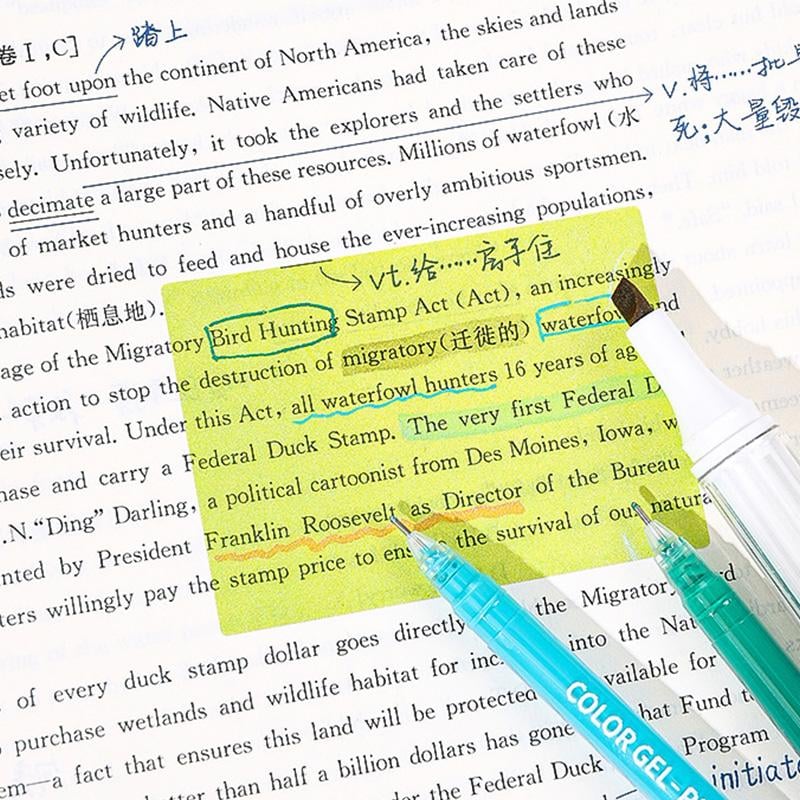 卷Ⅰ,C]
踏上
et foot upon the continent of North America, the skies and lands
variety of wildlife. Native Americans had taken care of these
sely. Unfortunately, it took the explorers and the settlers who
v.将……批
死;大量毁
decimate a large part of these resources. Millions of waterfowl (水
of market hunters and a handful of overly ambitious sportsmen.
ds were dried to feed and house the ever-increasing populations,
vt.给……房子住
habitat(栖息地).
age of the Migratory Bird Hunting Stamp Act (Act), an increasingly
action to stop the destruction of migratory(迁徙的) waterfow nd
eir survival. Under this Act, all waterfowl hunters 16 years of ag
hase and carry a Federal Duck Stamp. The very first Federal D
.N.“Ding” Darling, a political cartoonist from Des Moines, Iowa, w
nted by President Franklin Roosevelt as Director of the Bureau
ters willingly pay the stamp price to ens the survival of our natura
of every duck stamp dollar goes directly the Migratory rd
purchase wetlands and wildlife habitat for inc into the Nat
em—a fact that ensures this land will be protected vailable for
tter than half a billion dollars has gone hat Fund t
der the Federal Duck Program
initiate
COLOR GEL-P